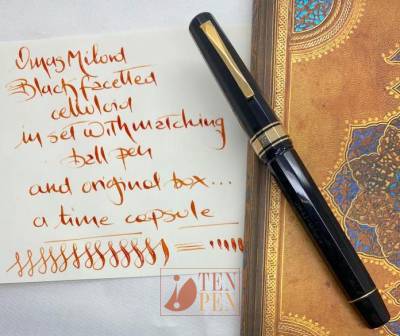 Omas Milord
Black facetted
celluloid
in set with matching
ball pen
and original box...
a time capsule
TEN
PEN